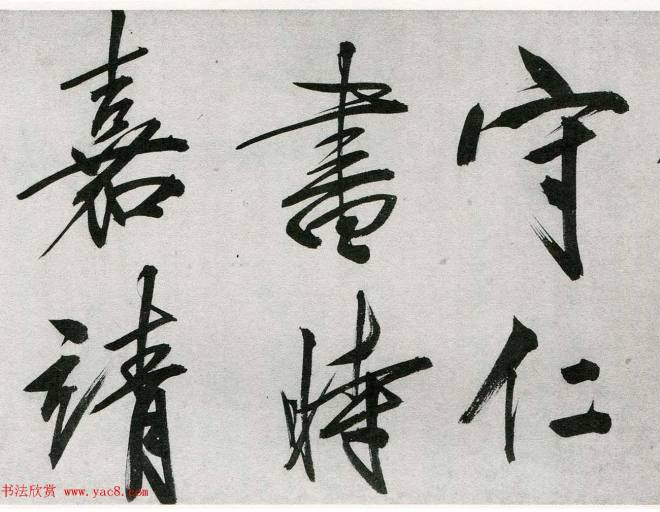 守仁
書時
嘉靖
书法欣赏 www.yac8.com